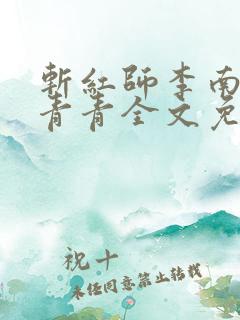 斬紅師李南
青青全文免
祝十
未任同意禁止转载